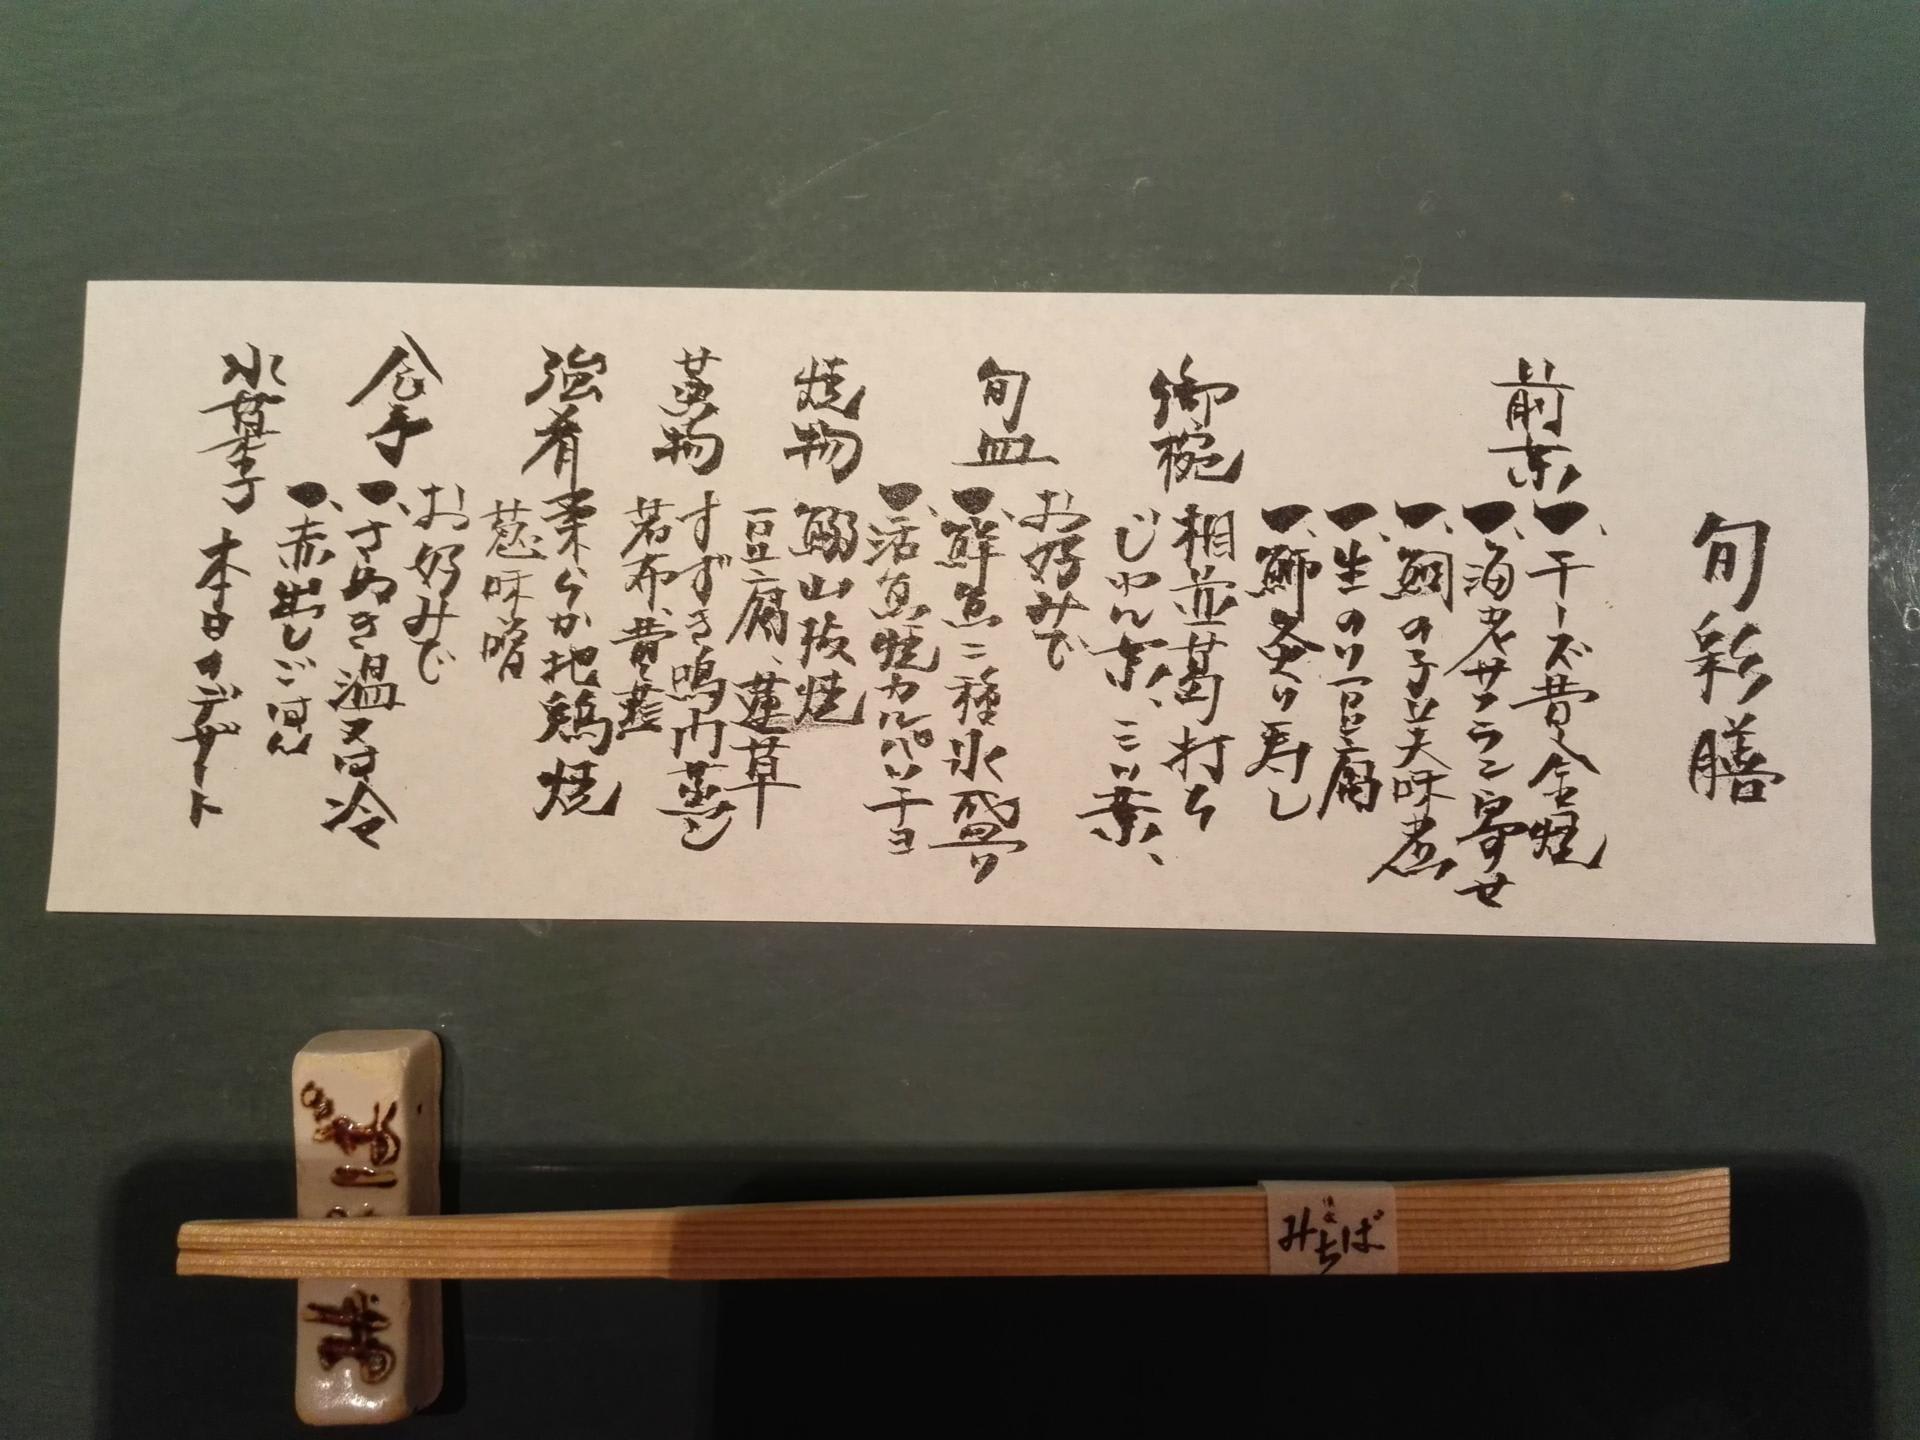 旬彩膳
前菜
一、チーズ黄金焼
一、海老サフラン寄せ
一、鯛の子美味煮
一、生のり豆腐
一、鰤灸り寿し
御椀
相並葛打ち
じゅん菜、三つ葉、
旬皿
お好みで
一、鮮魚二種氷盛り
一、活魚焼カルパッチョ
焼物
鰯山椒焼
豆腐、蓮草
蒸物
すずき鳴門蒸し
若布、黄韮
強肴
柔らか地鶏焼
葱味噌
食事
お好みで
一、さぬき温又は冷
一、赤出しごはん
水菓子
本日のデザート
みちば